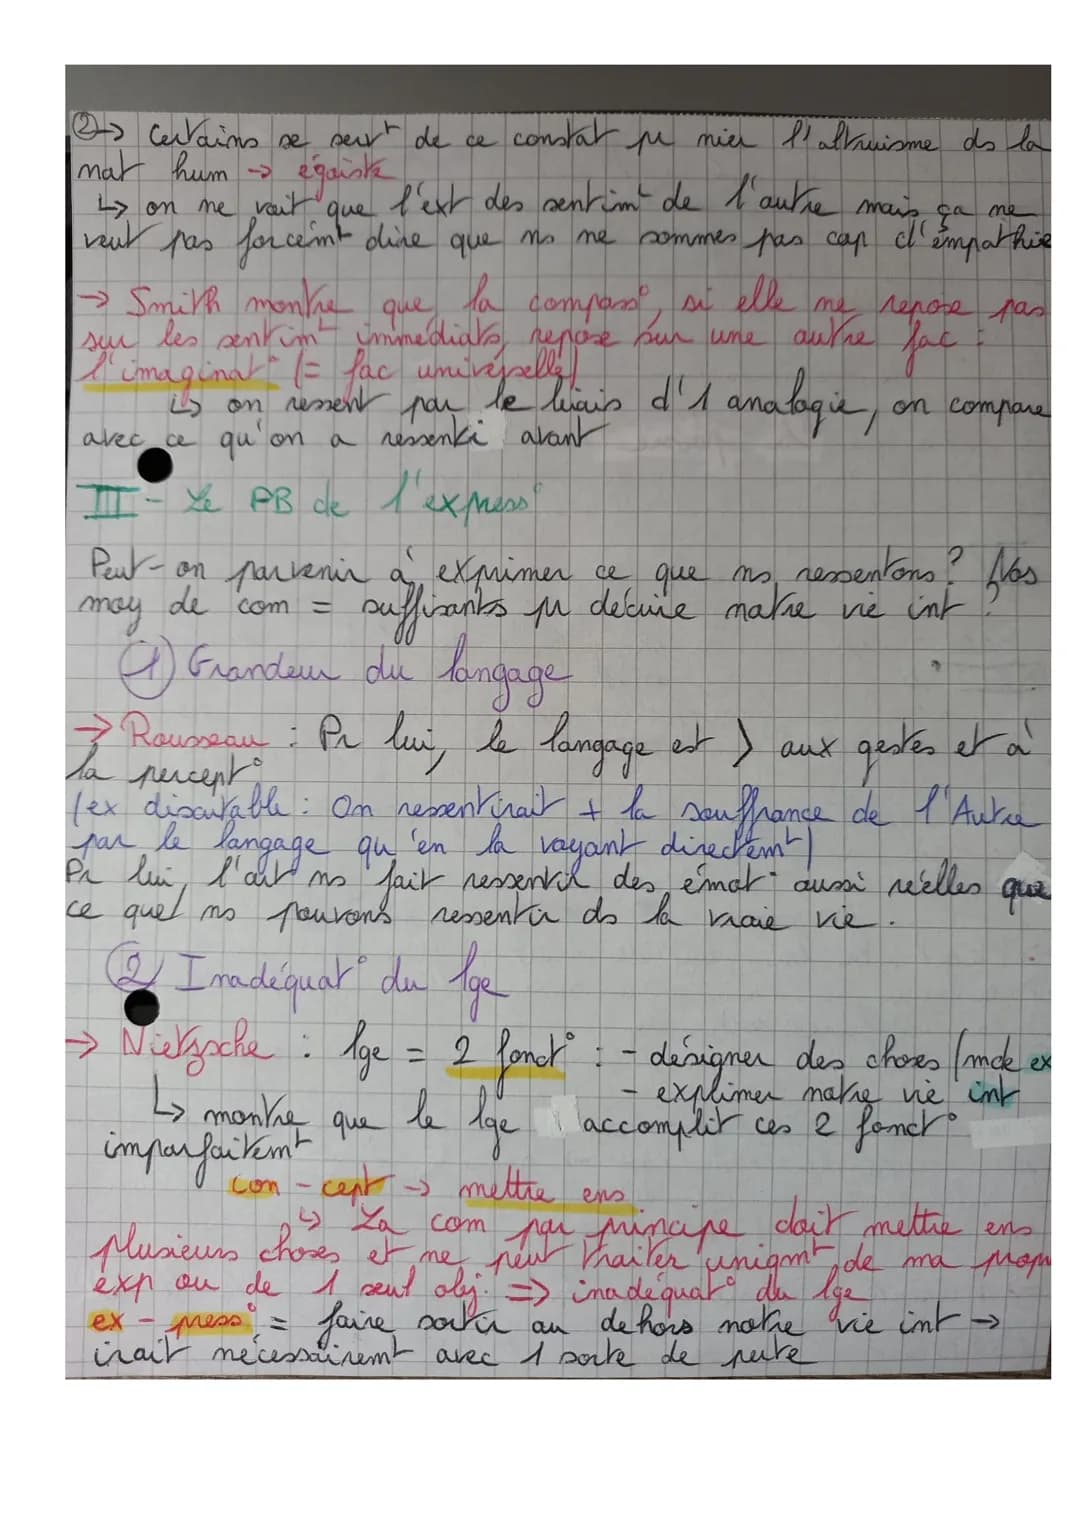 ② → Certains se servt de ce constat pr nier l'altruisme ds la
nat hum → égoïste
↳ on ne voit que l'ext des sentimt de l'autre mais ça ne
veut pas forcémt dire que ns ne sommes pas cap d'empathie
→ Smith montre que la compass°, si elle ne repose pas
sur les sentimt immédiats, repose sur une autre fac :
l'imaginat° (= fac universelle)
↳ on ressent par le biais d'1 analogie, on compare
avec ce qu'on a ressenti avant
III - Le PB de l'express°
Peut-on parvenir à exprimer ce que ns ressentons ? Nos
moy de com = suffisants pr décrire notre vie int ?
① Grandeur du langage
→ Rousseau : Pr lui, le langage est > aux gestes et à
la percept°
(ex discutable : On ressentirait + la souffrance de l'Autre
par le langage qu'en la voyant directemt)
Pr lui, l'art ns fait ressentir des émot° aussi réelles que
ce que ns pouvons ressentir ds la vraie vie.
② Inadéquat° du lge
→ Nietzsche : lge = 2 fonct° : - désigner des choses (mde ex
- exprimer notre vie int
↳ montre que le lge accomplit ces 2 fonct°
imparfaitemt
con - cept → mettre ens
↳ La com par principe doit mettre ens
plusieurs choses et ne peut traiter uniqmt de ma prop
exp ou de 1 seul obj. => inadéquat° du lge
ex - press° = faire sortir au dehors notre vie int →
irait nécessairemt avec 1 sorte de perte